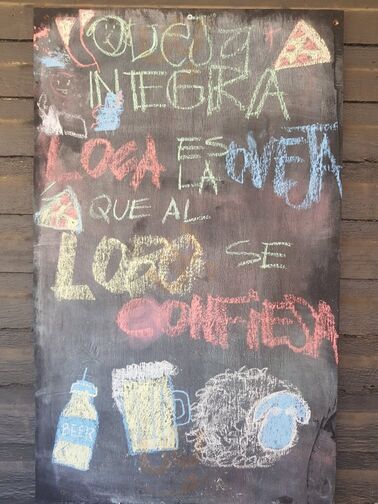 INTEGRA
LOCA ES LA OVEJA
QUE AL
LOBO SE
CONFIESA
BEER